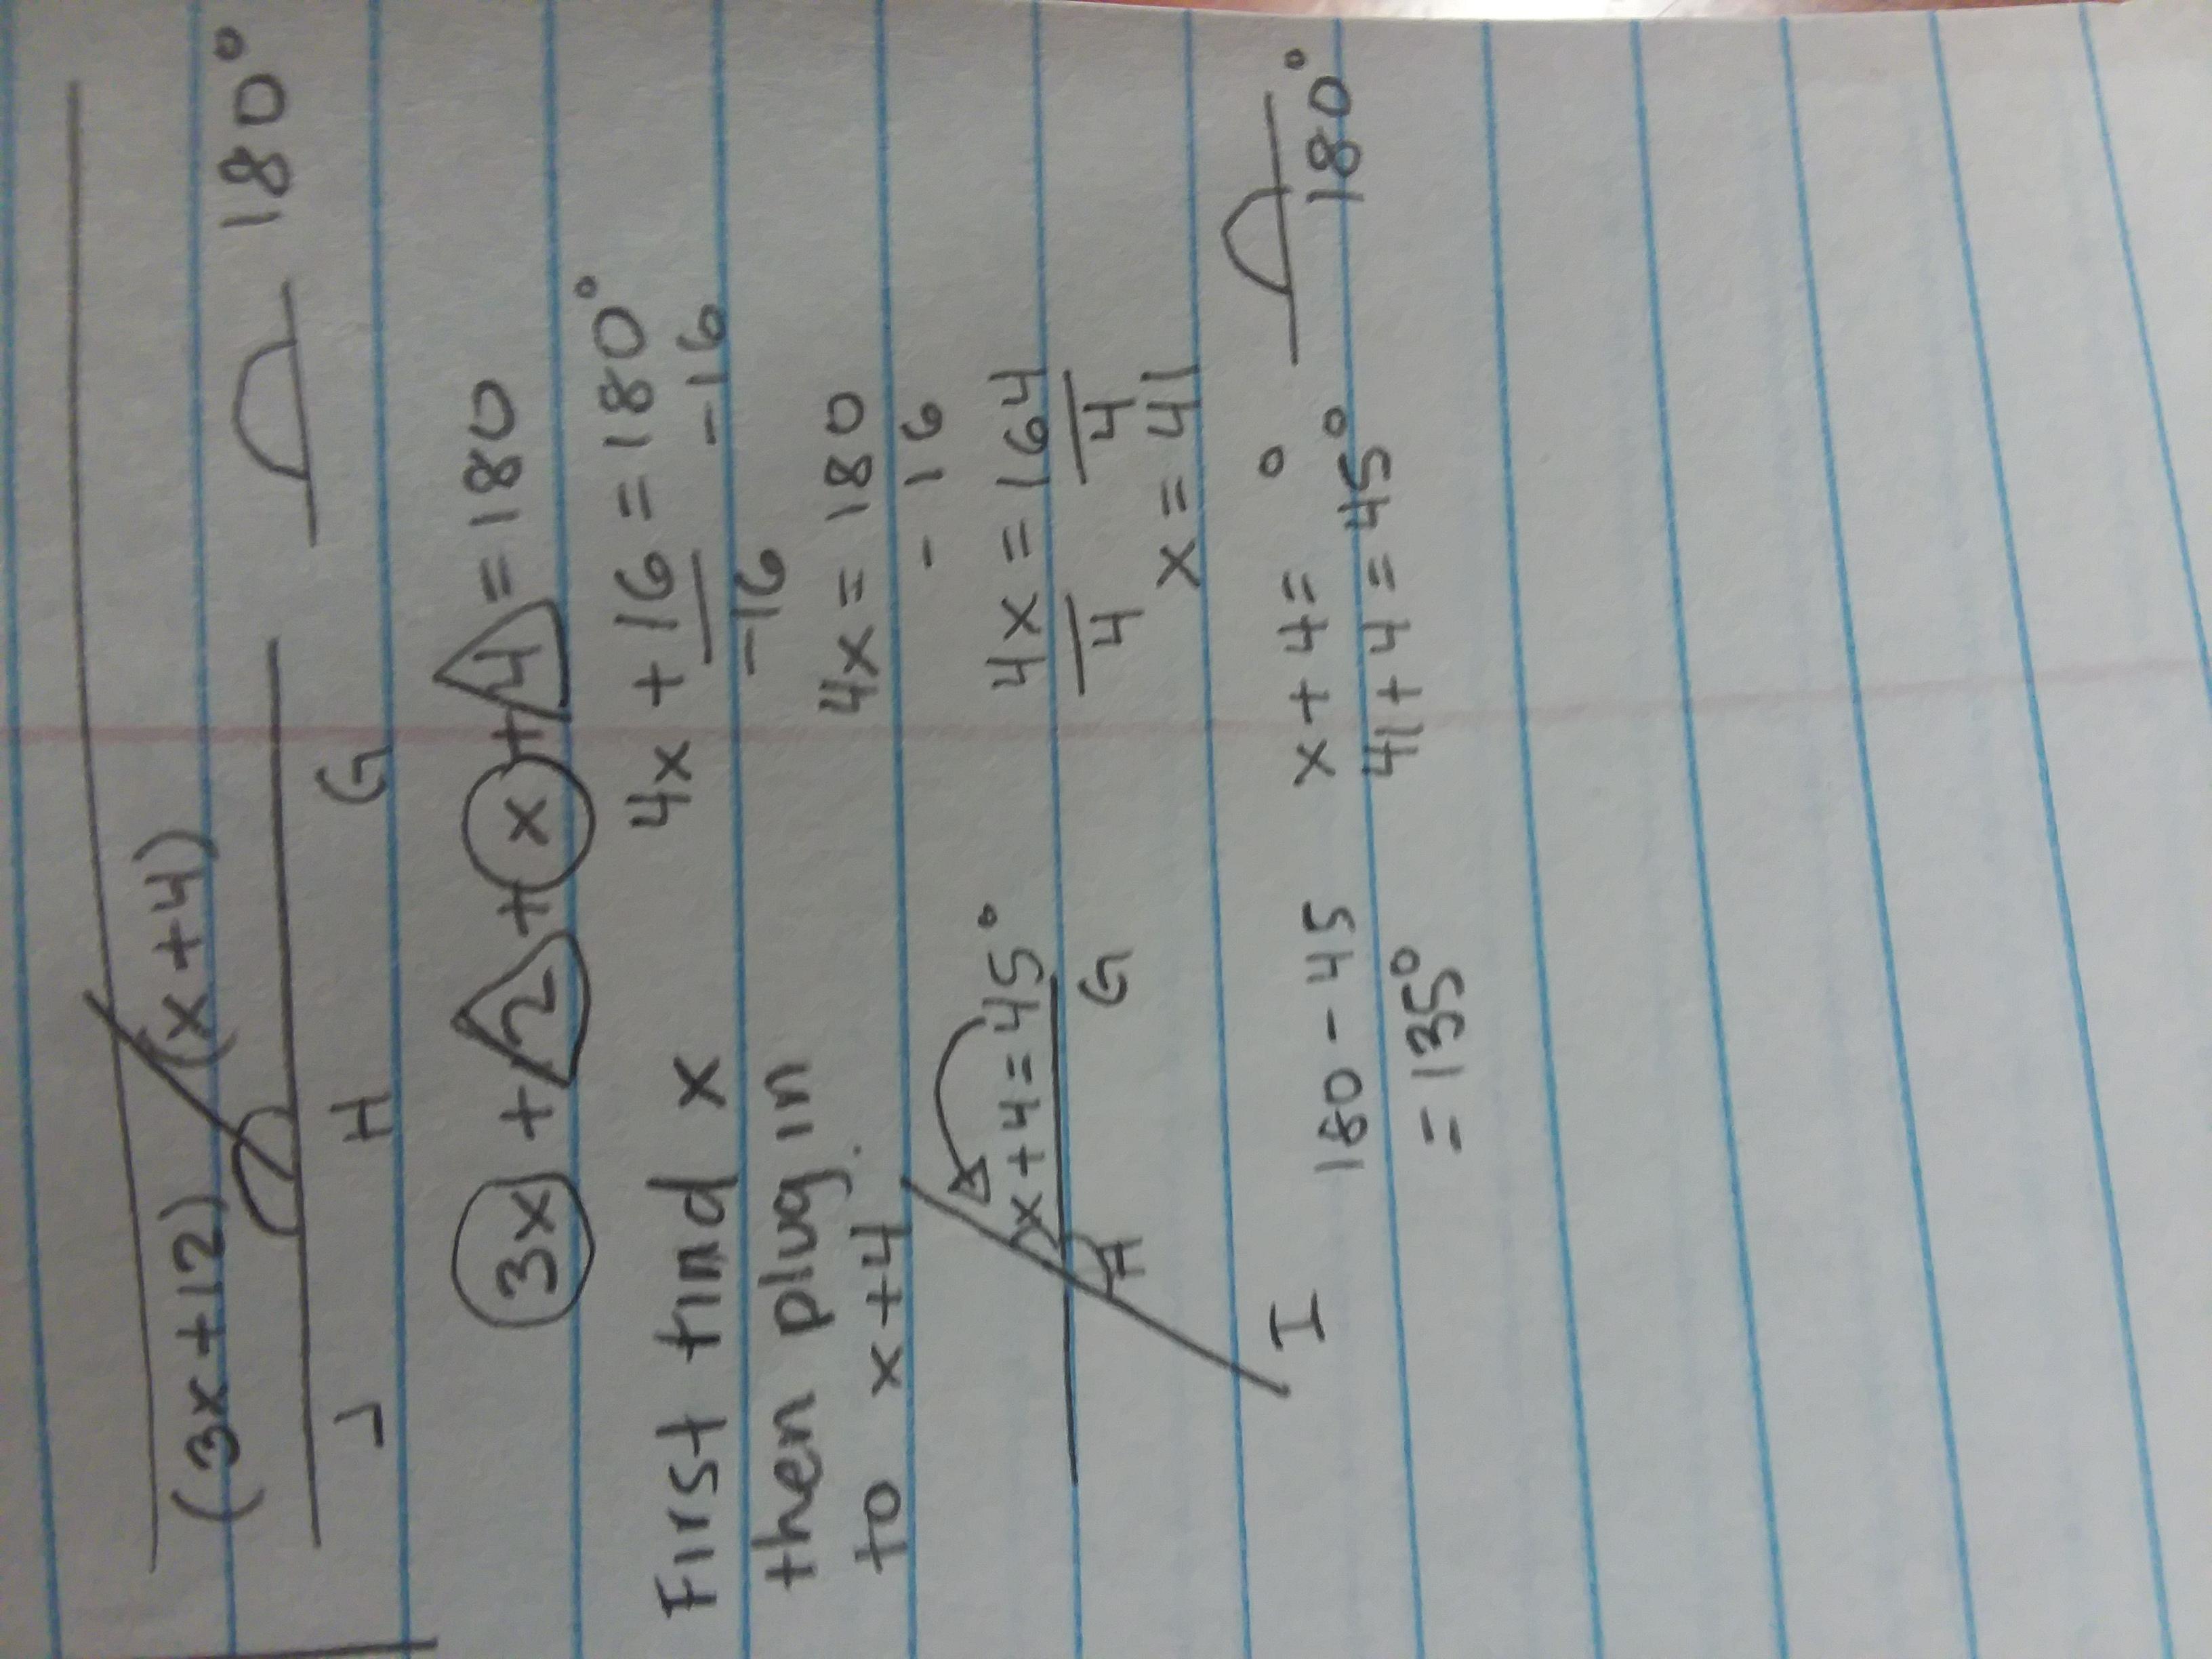 (3x+12) (x+4) 180°
J H G
3x + 12 + x + 4 = 180
4x + 16 = 180°
-16 -16
First find x
then plug in
to x+4
4x = 180
- 16
4x = 164
4 4
x = 41
x+4=45°
H G
I
180°
x+4= °
41+4=45°
180-45
=135°